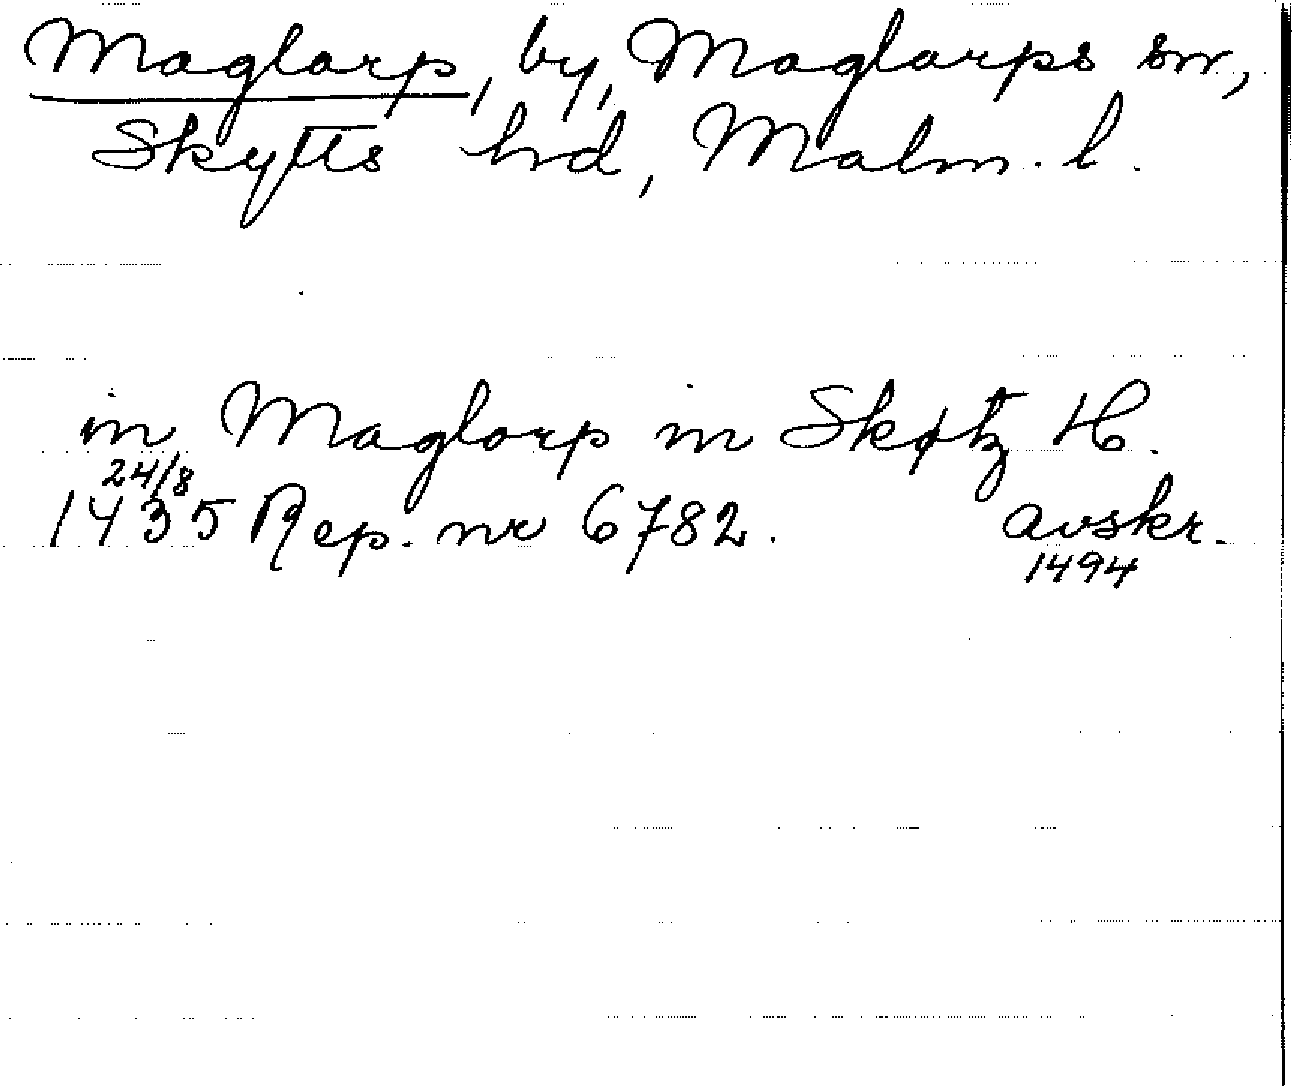 Maglarp, by, Maglarps sn,
Skytts hd, Malm. l.
in Maglorp in Skøtz H.
24/8
1435 Rep. nr 6782. avskr.
1494